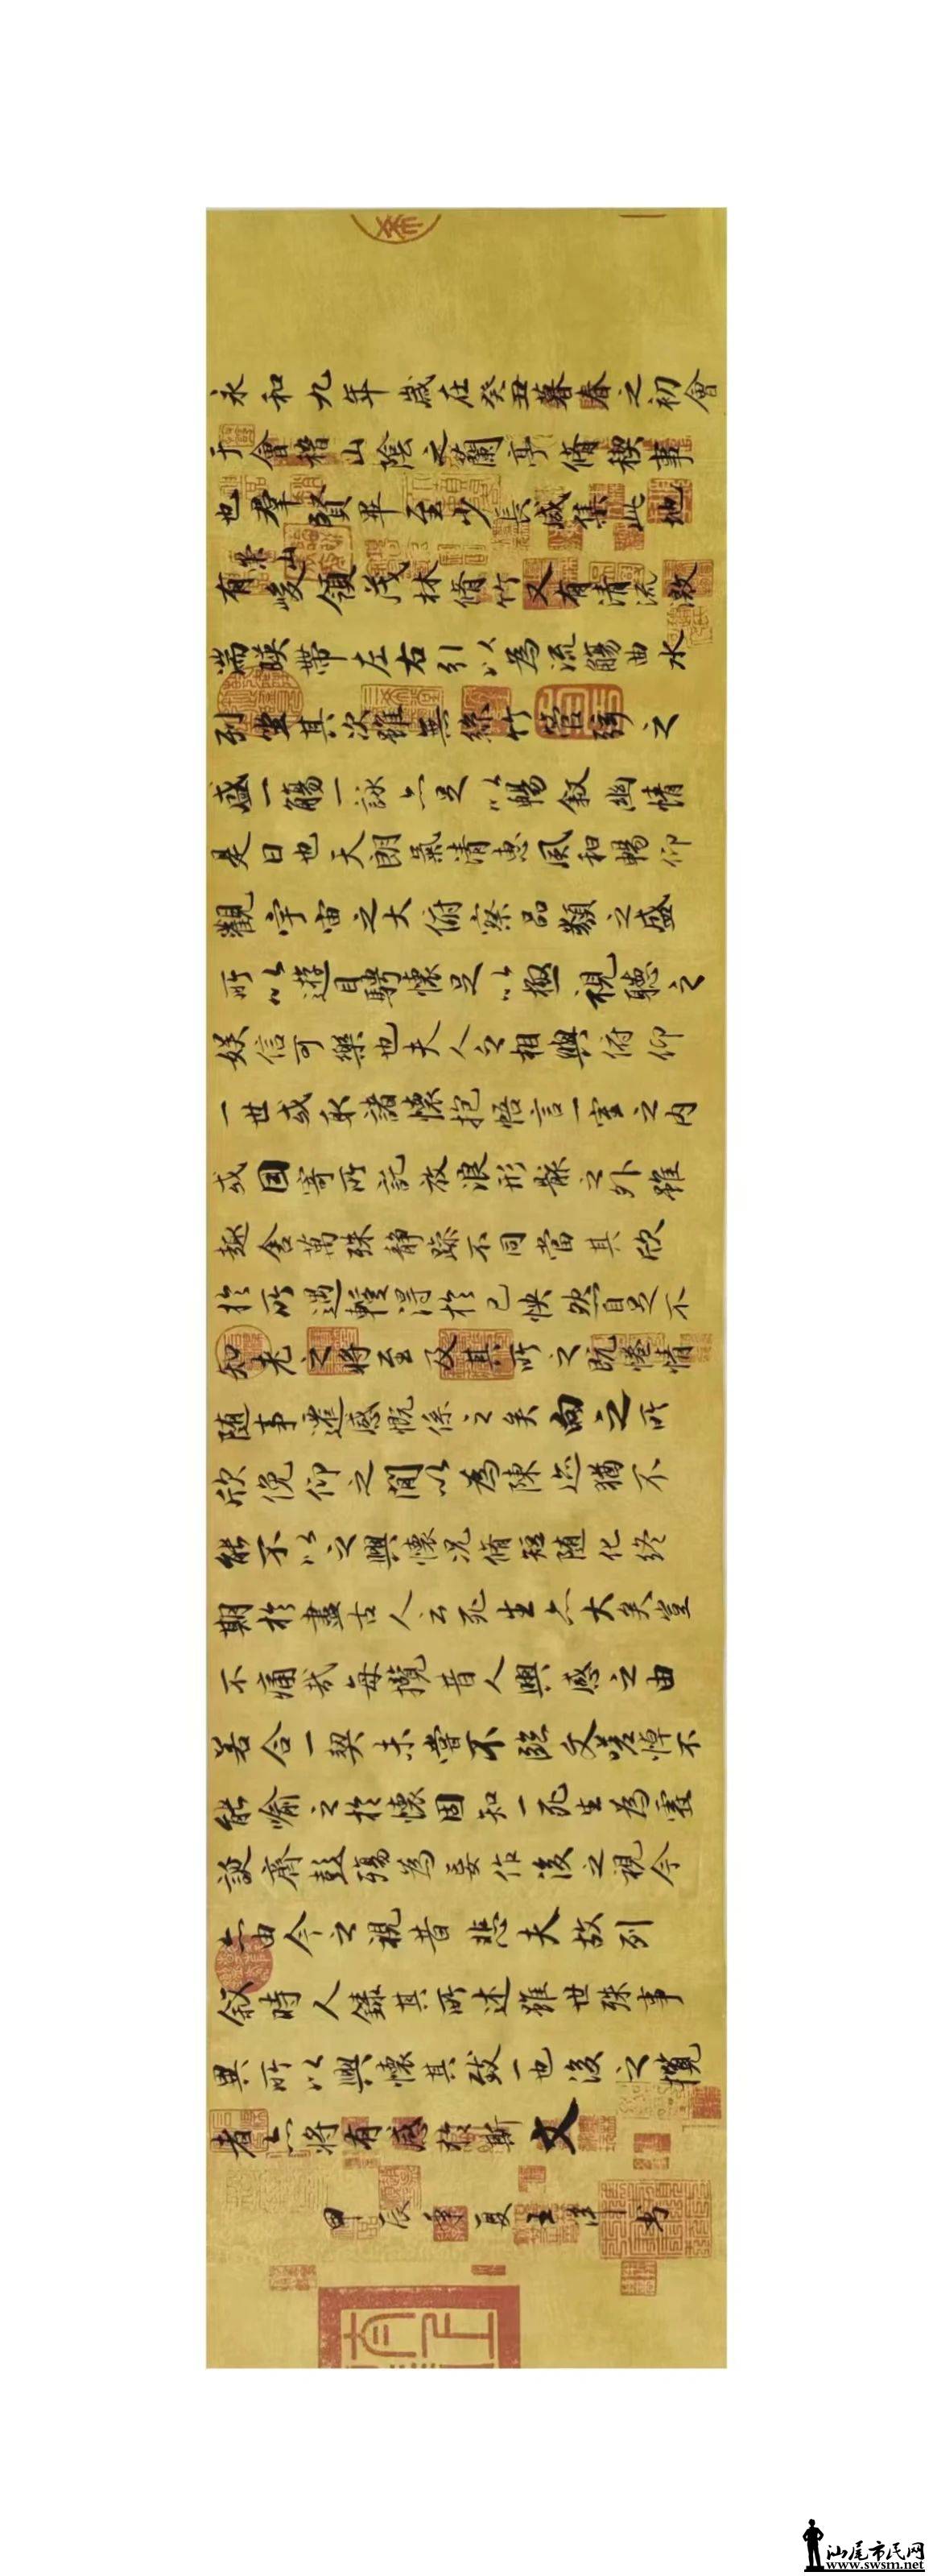 永和九年歲在癸丑暮春之初會
于會稽山陰之蘭亭脩稧事
也群賢畢至少長咸集此地
有崇山峻領茂林脩竹又有清流激
湍暎帶左右引以為流觴曲水
列坐其次雖無絲竹管弦之
盛一觴一詠亦足以暢敘幽情
是日也天朗氣清惠風和暢仰
觀宇宙之大俯察品類之盛
所以遊目騁懷足以極視聽之
娛信可樂也夫人之相與俯仰
一世或取諸懷抱悟言一室之內
或因寄所託放浪形骸之外雖
趣舍萬殊靜躁不同當其欣
於所遇暫得於己怏然自足不
知老之將至及其所之既惓情
随事遷感慨係之矣向之所
欣俛仰之間以為陳迹猶不
能不以之興懷況脩短随化終
期於盡古人云死生亦大矣豈
不痛哉每攬昔人興感之由
若合一契未嘗不臨文嗟悼不
能喻之於懷固知一死生為虛
誕齊彭殤為妄作後之視今
亦由今之視昔悲夫故列
敘時人錄其所述雖世殊事
異所以興懷其致一也後之攬
者亦將有感於斯文
甲辰夏王書
汕尾市民网
www.swsm.net